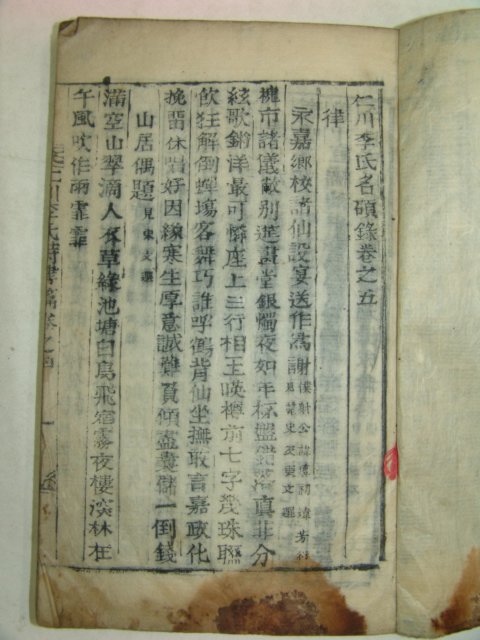 仁川李氏名碩錄卷之五
律
永嘉鄉校諸仙設宴送作爲謝
擁市諸儀敞別筵畵堂銀燭夜如年杯盤
眞非分
絃歌鏘洋最可憐座上三行相玉暎樽前七字幾珠聯
飮狂解倒蟬塲客舞巧誰呼鶴背仙坐撫取言嘉政化
挽留休嫌好因緣寒生厚意誠難負傾盡囊儲一倒錢
山居偶題見東文選
滿空山翠滴人衣草綠池塘白鳥飛宿霧夜棲深林在
午風吹作雨霏霏